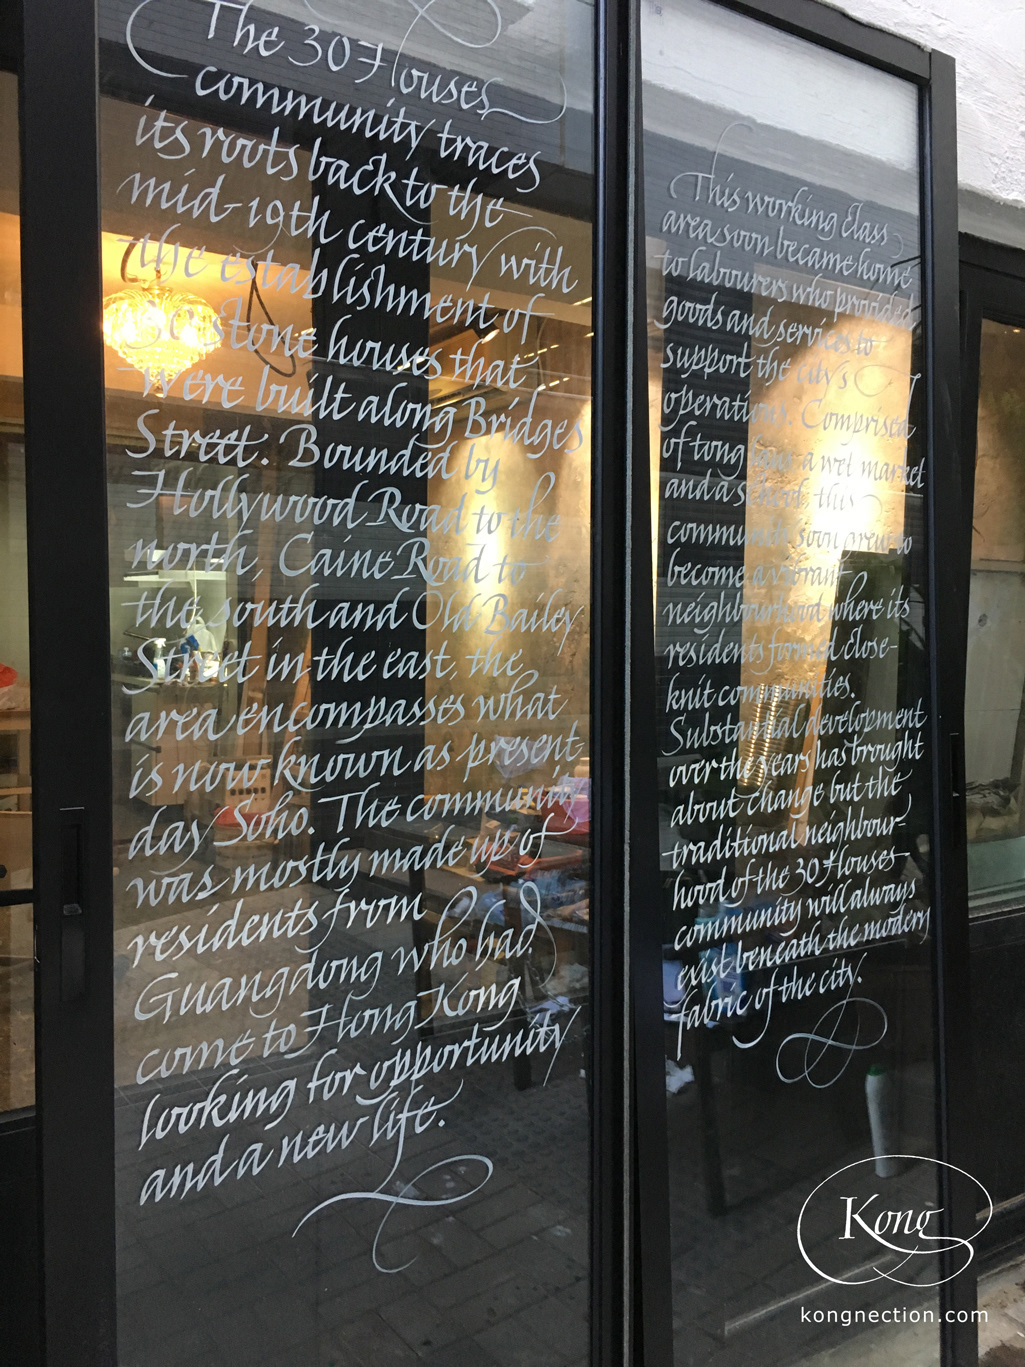 The 30 Houses
community traces
its roots back to the
mid-19th century with
the establishment of
30 stone houses that
were built along Bridges
Street. Bounded by
Hollywood Road to the
north, Caine Road to
the south and Old Bailey
Street in the east, the
area encompasses what
is now known as present-
day Soho. The community
was mostly made up of
residents from
Guangdong who had
come to Hong Kong
looking for opportunity
and a new life.
This working class
area soon became home
to labourers who provided
goods and services to
support the city's
operations. Comprised
of tong laus a wet market
and a school, this
community soon grew to
become a vibrant
neighbourhood where its
residents formed close-
knit communities.
Substantial development
over the years has brought
about change but the
traditional neighbour-
hood of the 30 Houses
community will always
exist beneath the modern
fabric of the city.
Kong
kongnection.com